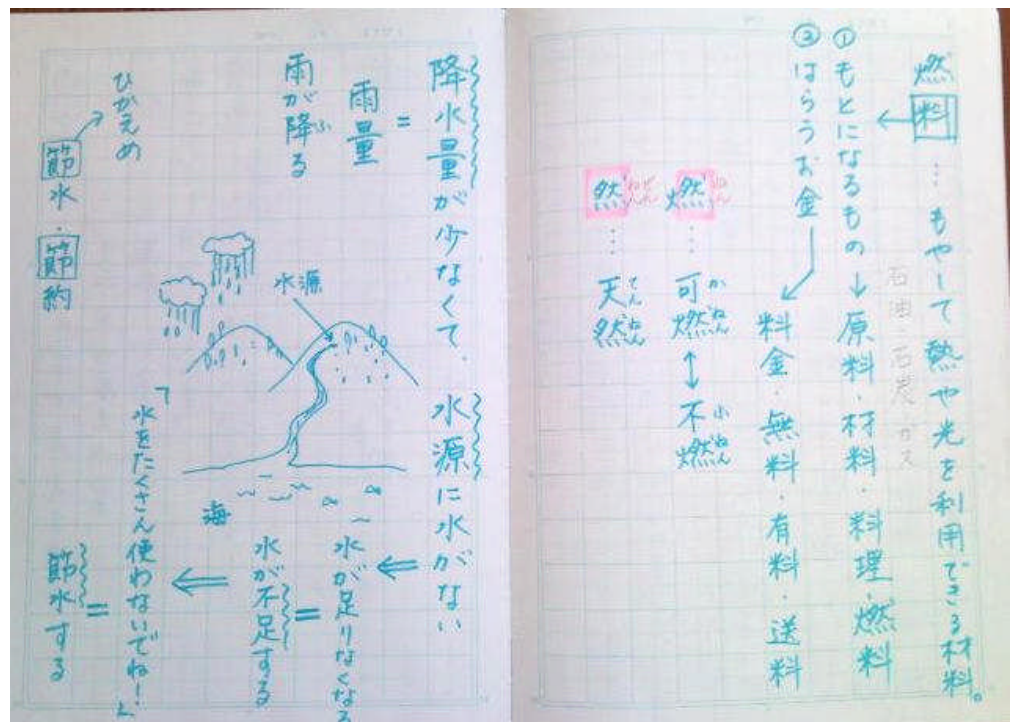 燃料…もやして熱や光を利用できる材料。
石油・石炭・ガス
①もとになるもの→原料・材料・料理・燃料
②はらうお金→料金・無料・有料・送料
燃ねん…可燃かねん↔不燃ふねん
然ぜんねん…天然てんねん
降水量が少なくて、水源に水がない
=
雨量
雨が降ふる
水源
海
水が足りなくなる
=
水が不足する
「水をたくさん使わないでね！」
=
節水する
ひかえめ
節水・節約